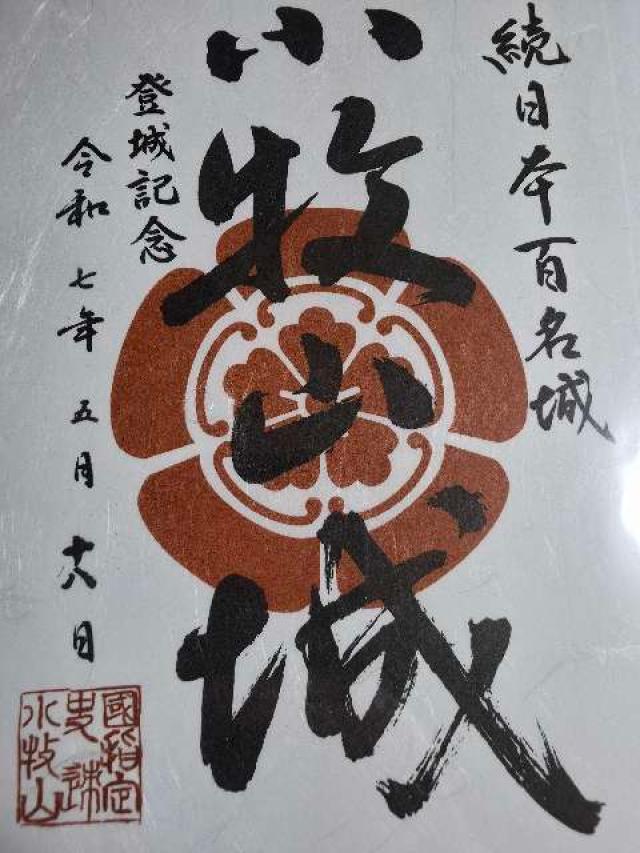 続日本百名城
小牧山城
登城記念
令和七年五月十八日
國指定
史蹟
小牧山